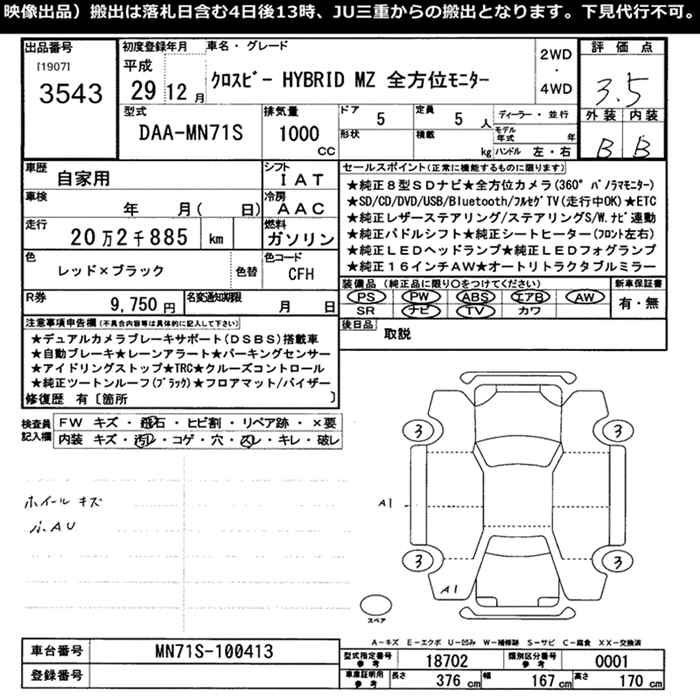 映像出品）搬出は落札日含む4日後13時、JU三重からの搬出となります。下見代行不可。
出品番号
[1907]
3543
初度登録年月
平成
29 12月
車名・グレード
クロスビー HYBRID MZ 全方位モニター
2WD
・
4WD
評価点
3.5
外装 内装
B B
型式
DAA-MN71S
排気量
1000
CC
ドア 5
形状
定員 5 人
積載 kg
ディーラー・並行
モデル年式 年
ハンドル 左・右
車歴
自家用
シフト
IAT
車検
年 月( 日)
冷房
AAC
走行
20万2千885 km
燃料
ガソリン
色
レッド×ブラック
色替
色コード
CFH
R券
9,750円
名変通知期限
月 日
セールスポイント(正常に機能するものに限ります)
★純正8型SDナビ★全方位カメラ(360°パノラマモニター)
★SD/CD/DVD/USB/Bluetooth/フルセグTV(走行中OK)★ETC
★純正レザーステアリング/ステアリングS/W.ナビ連動
★純正パドルシフト★純正シートヒーター(フロント左右)
★純正LEDヘッドランプ★純正LEDフォグランプ
★純正16インチAW★オートリトラクタブルミラー
装備品(純正品に限り○をつけてください)
PS PW ABS エアB AW
SR ナビ TV カワ
新車保証書
有・無
後日品
取説
注意事項申告欄(不具合内容等は具体的に記入して下さい)
★デュアルカメラブレーキサポート(DSBS)搭載車
★自動ブレーキ★レーンアラート★パーキングセンサー
★アイドリングストップ★TRC★クルーズコントロール
★純正ツートンルーフ(ブラック)★フロアマット/バイザー
修復歴 有〔箇所 〕
検査員記入欄
FW キズ・飛石・ヒビ割・リペア跡・×要
内装 キズ・汚れ・コゲ・穴・スレ・キレ・破レ
ホイールキズ
小.AU
3 3
A1
3 3
A1
スペア
A-キズ E-エクボ U-凹み W-補修跡 S-サビ C-腐食 XX-交換済
車台番号
MN71S-100413
登録番号
型式指定番号参考
18702
類別区分番号参考
0001
車庫証明用参考
長さ 376 cm
幅 167 cm
高さ 170 cm